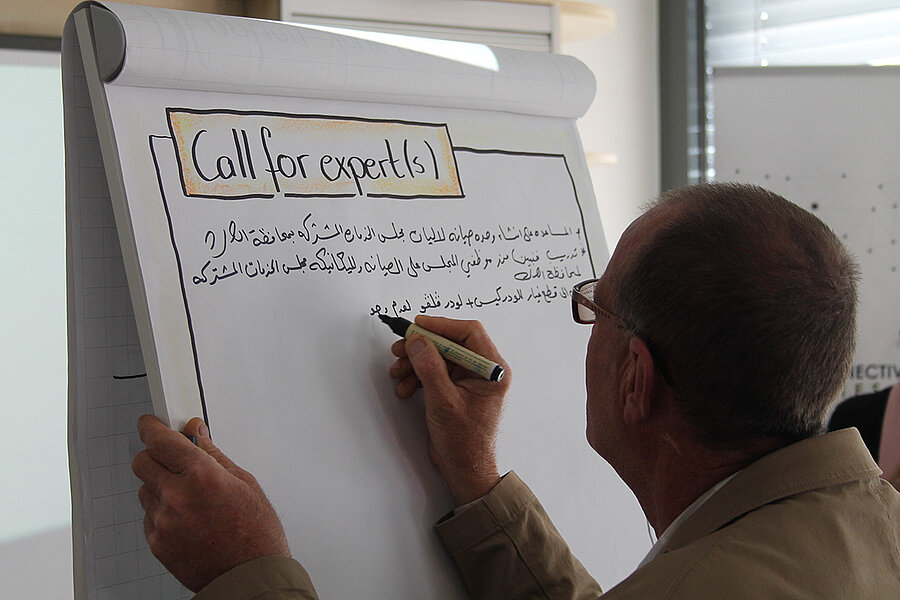 Call for expert(s)
* المساعده على انشاء وحده صيانه لاليات مجلس الخدمات المشتركه بمحافظة
* تدريب فنيين من موظفي المجلس على الصيانه والميكانيكه مجلس الخدمات المشتركه
لمحافظة
الى قطع غيار اللودر كيس + لودر فلفو لعدم وجو
NECTIV
ES